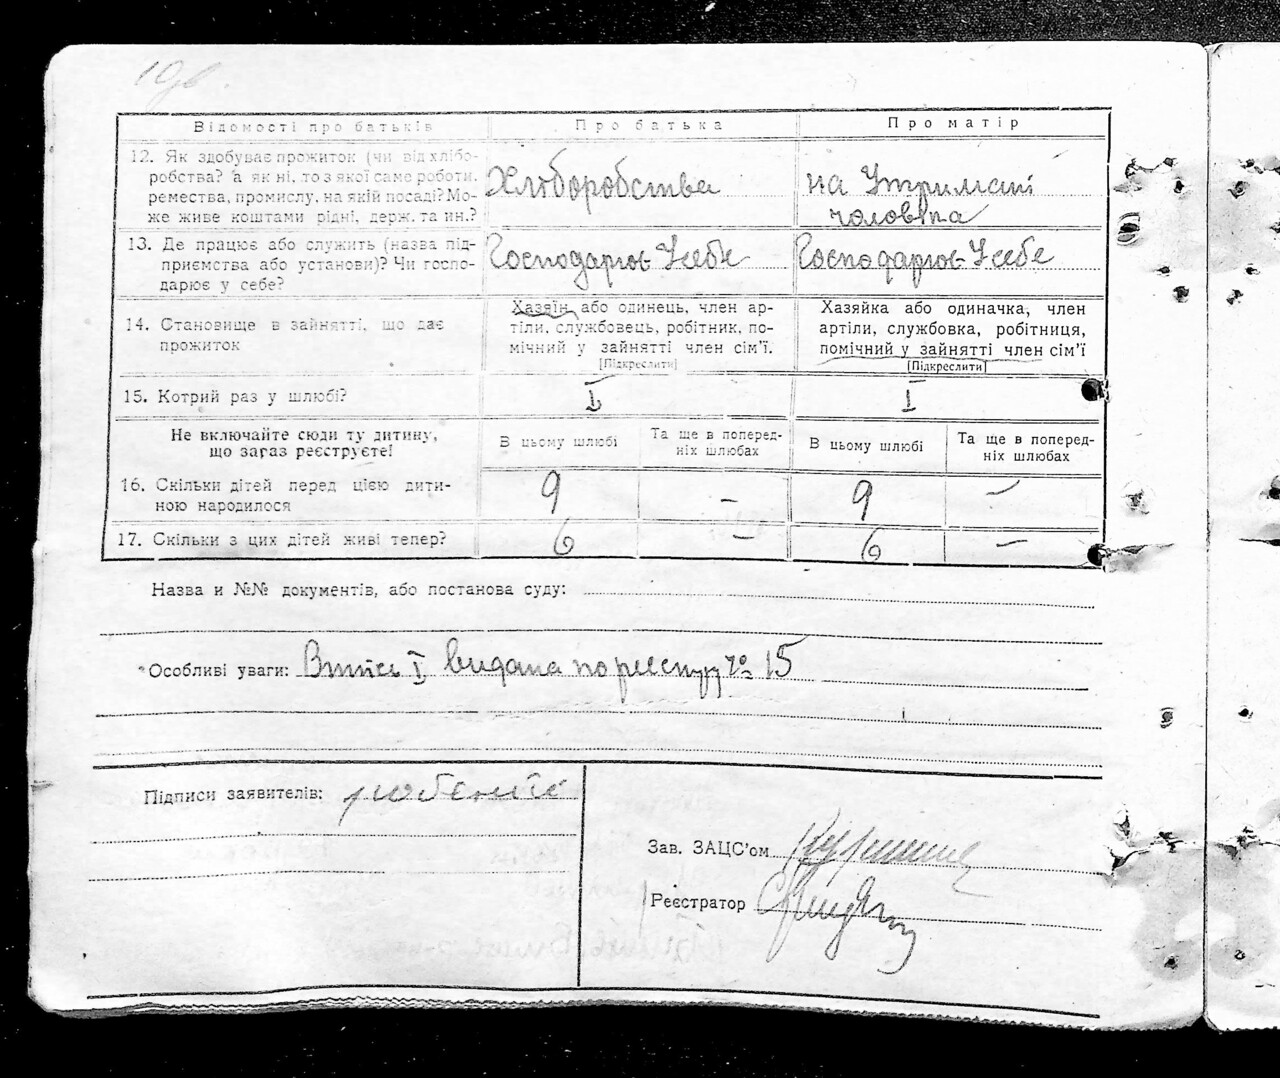 19 зв.
Відомості про батьків
Про батька
Про матір
12. Як здобуває прожиток (чи від хлібо-
робства? а як ні, то з якої саме роботи,
ремества, промислу, на якій посаді? Мо-
же живе коштами рідні, держ. та ин.?
Хліборобства
на Утримані
чоловіка
13. Де працює або служить (назва під-
приємства або установи)? Чи госпо-
дарює у себе?
Господарює Усебе
Господарює Усебе
14. Становище в зайнятті, що дає
прожиток
Хазяїн, або одинець, член ар-
тіли, службовець, робітник, по-
мічний у зайнятті член сім'ї.
[Підкреслити]
Хазяйка або одиначка, член
артіли, службовка, робітниця,
помічний у зайнятті член сім'ї
[Підкреслити]
15. Котрий раз у шлюбі?
I
I
Не включайте сюди ту дитину,
що зараз реєструєте!
В цьому шлюбі
Та ще в поперед-
ніх шлюбах
В цьому шлюбі
Та ще в поперед-
ніх шлюбах
16. Скільки дітей перед цією дити-
ною народилося
9
–
9
–
17. Скільки з цих дітей живі тепер?
6
–
6
–
Назва и №№ документів, або постанова суду:
Особливі уваги: Випись I видана по реєстру № 15
Підписи заявителів:
Зав. ЗАЦС'ом
Реєстратор